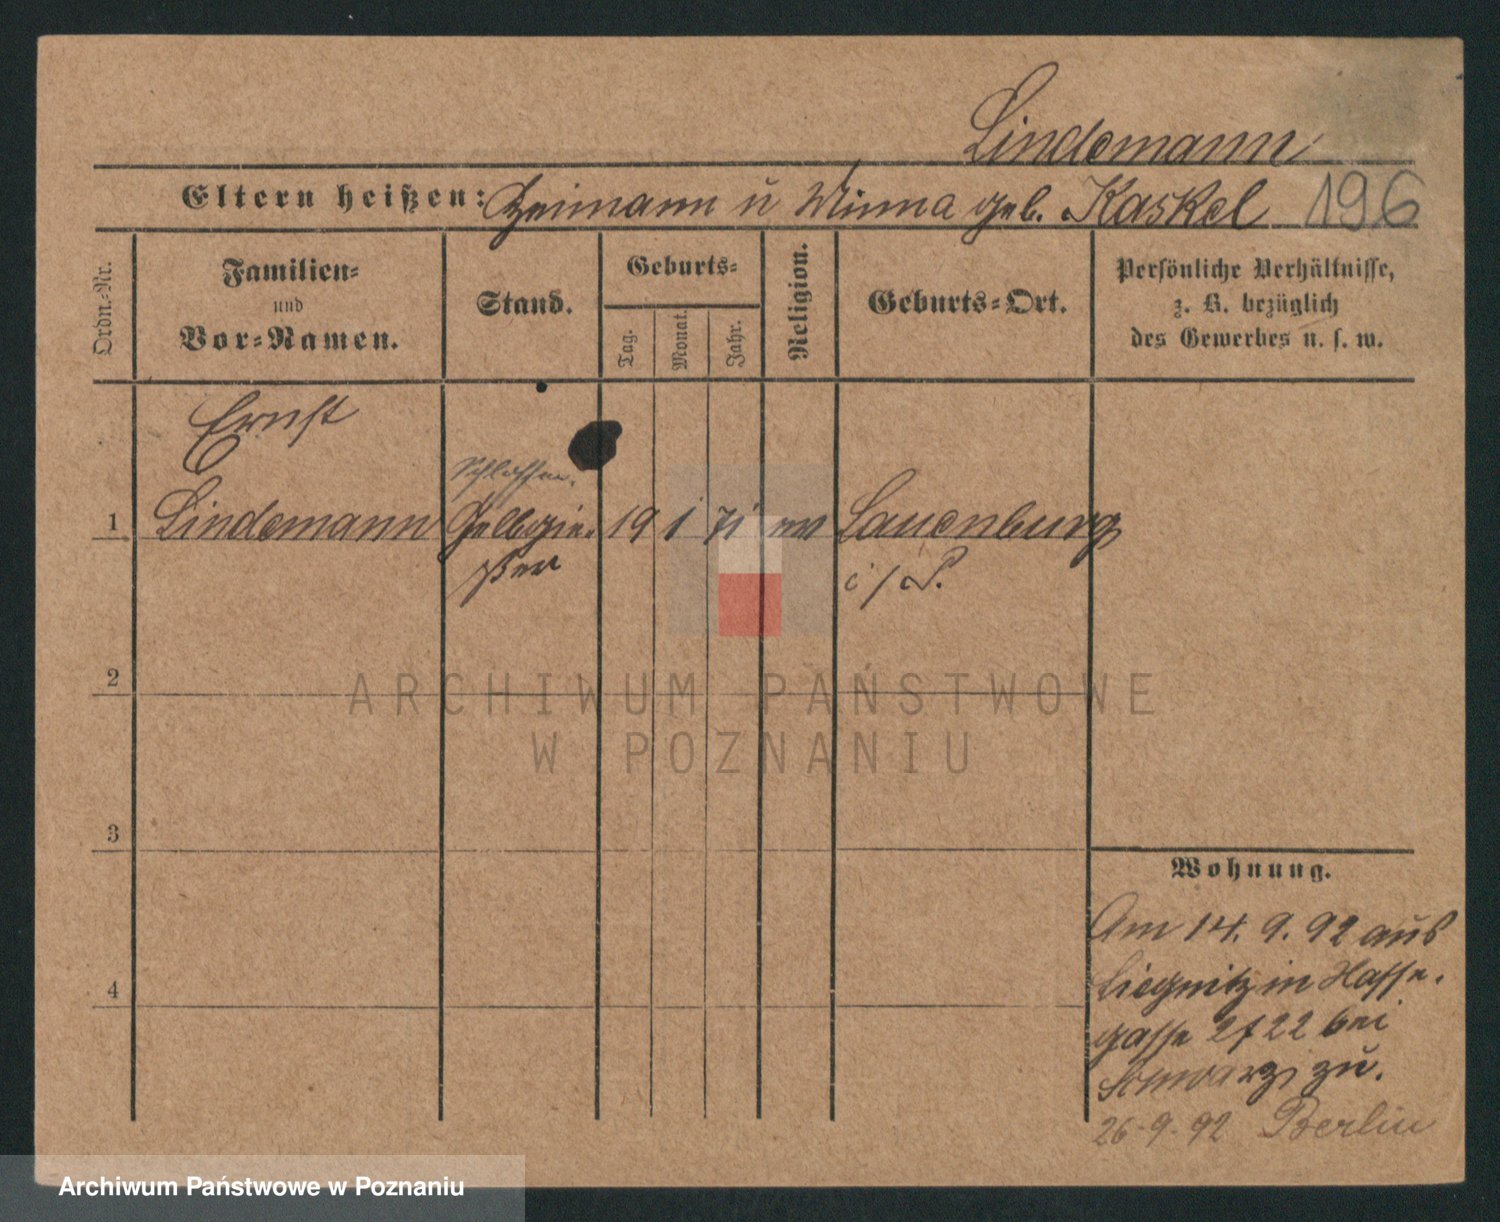 Lindemann
Eltern heißen: Heimann u Minna geb. Kaskel 196
Ordn.-Nr.
Familien-
und
Vor-Namen.
Stand.
Geburts-
Tag.
Monat.
Jahr.
Religion.
Geburts-Ort.
Persönliche Verhältnisse,
z. B. bezüglich
des Gewerbes u. s. w.
Ernst
1 Lindemann Gelbgie- 19 1 71 Lauenburg
ßer i/P.
2
3
4
Wohnung.
Am 14. 9. 92 aus
Liegnitz in
gasse bei
zu.
26.9.92 Berlin
ARCHIWUM PAŃSTWOWE
W POZNANIU
Archiwum Państwowe w Poznaniu